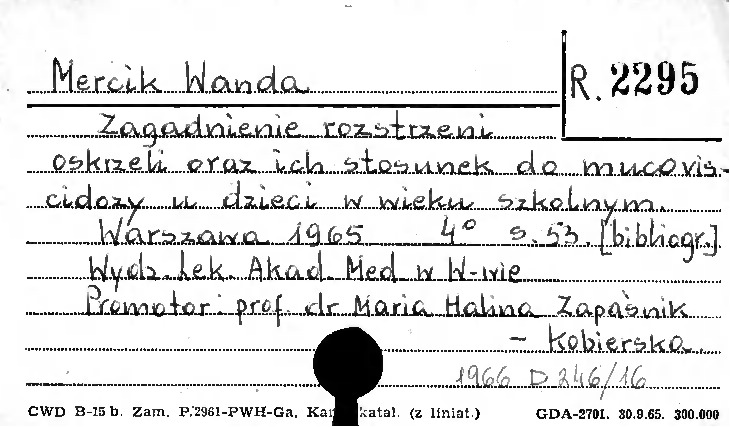 Mercik Wanda
R. 2295
Zagadnienie rozstrzeni
oskrzeli oraz ich stosunek do mucovis-
cidozy u dzieci w wieku szkolnym.
Warszawa 1965 4° s. 53. [bibliogr.]
Wydz. Lek. Akad. Med w W-wie
Promotor: prof. dr Maria Halina Zapaśnik
- Kobierska.
1966 D 246/16
CWD B-15 b. Zam. P/2961-PWH-Ga. katal. (z liniat.) GDA-2701. 30.9.65. 300.000